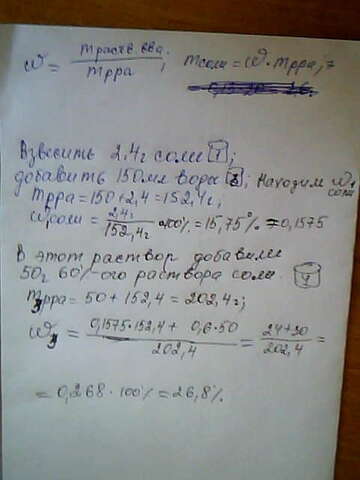 W = m раств. вва. / m рра ; m соли = W · m рра ; ⇒
Взвесить 2,4г соли 1 ;
добавить 150мл воды 2 ; Находим W1 соли
m рра = 150 + 2,4 = 152,4г ;
W соли = 2,4г / 152,4г · 100% = 15,75% = 0,1575
В этот раствор добавили
50г 60%-ого раствора соли.
m3 рра = 50 + 152,4 = 202,4г ;
W3 = 0,1575 · 152,4 + 0,6 · 50 / 202,4 = 24 + 30 / 202,4 =
= 0,268 · 100% = 26,8%.